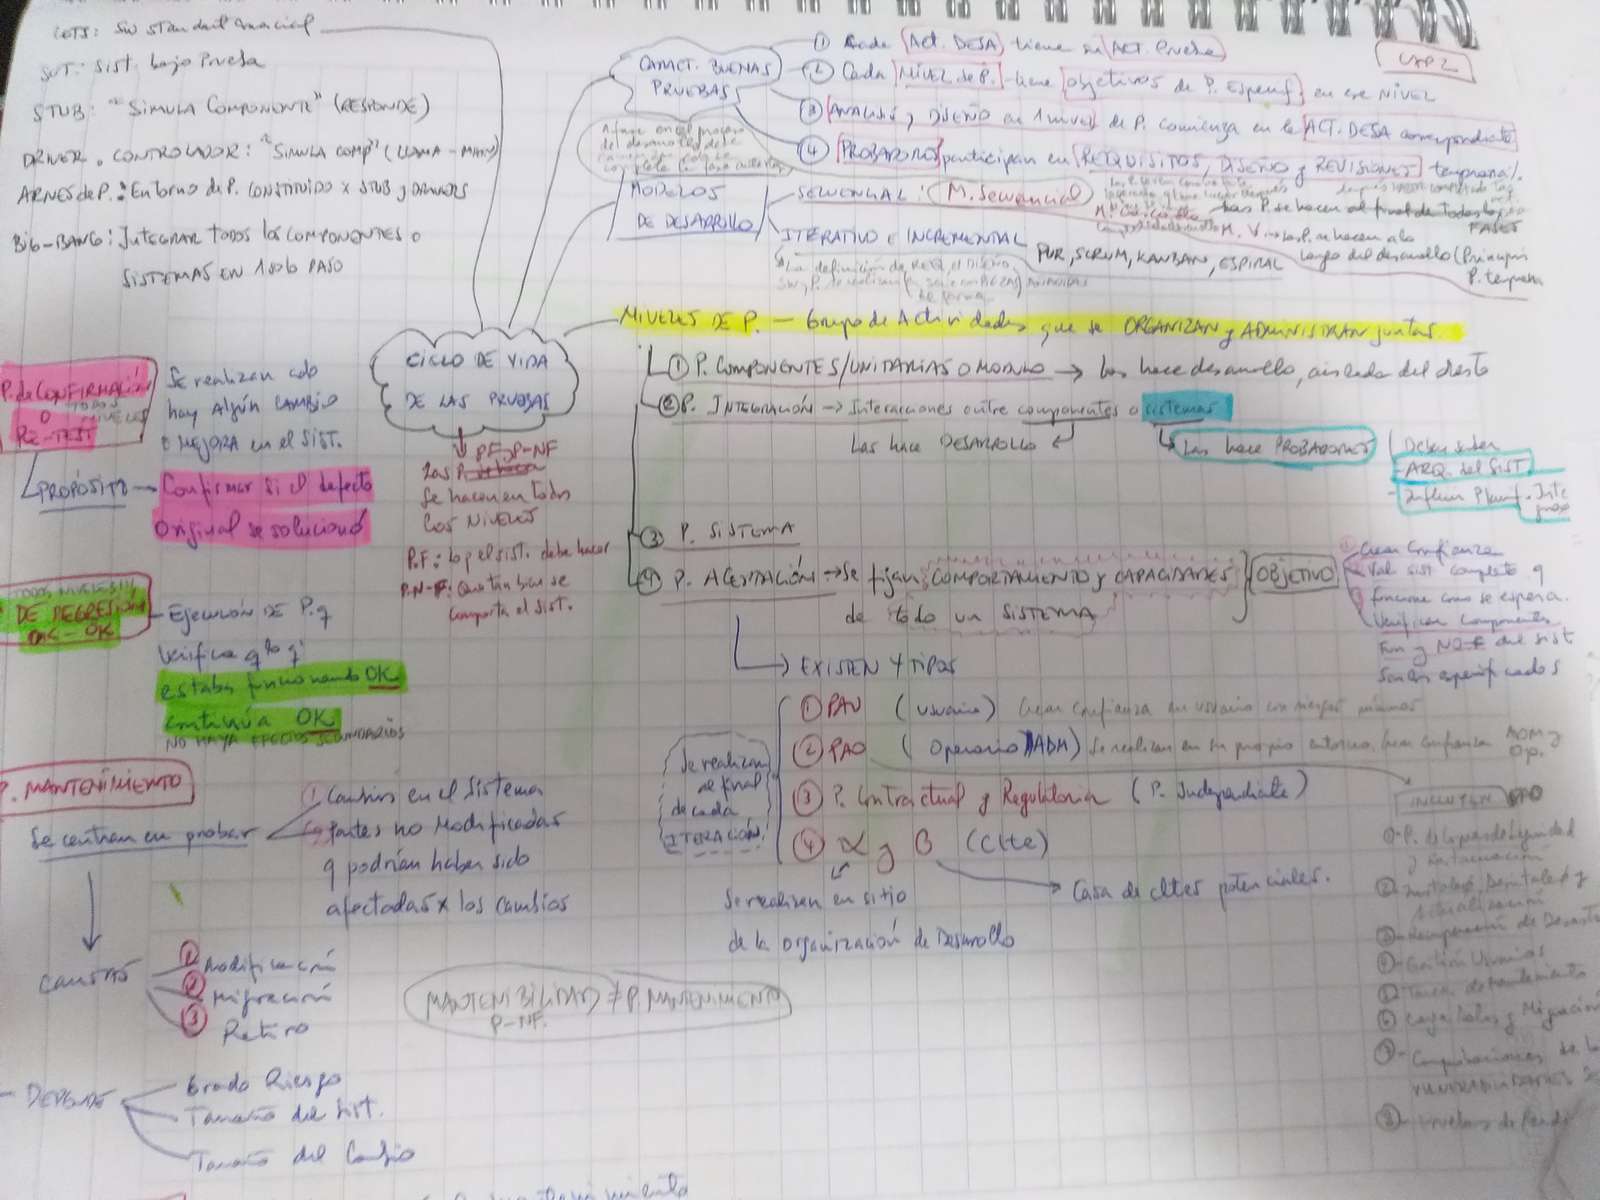 COTS: SW Standard Comercial
SUT: Sist. bajo Prueba
STUB: "SIMULA COMPONENTE" (RESPONDE)
DRIVER o CONTROLADOR: "SIMULA COMP" (LLAMA-MAIN)
ARNES de P.: Entorno de P. CONSTITUIDO x STUB y DRIVERS
BIG-BANG: INTEGRAR TODOS los COMPONENTES o
SISTEMAS EN 1 solo PASO
CAP 2
CARACT. BUENAS
PRUEBAS
① Cada Act. DESA tiene su ACT. Prueba
② Cada NIVEL de P. tiene objetivos de P. Especif en ese NIVEL
③ ANALISIS y DISEÑO en 1 nivel de P. comienza en la ACT. DESA correspondiente
④ PROBADORES participan en REQUISITOS, DISEÑO y REVISIONES temprana%
MODELOS
DE DESARROLLO
SECUENCIAL: (M. Secuencial)
Las P. se hacen al final de todas las
FASES
M. V: las P. se hacen a lo
largo del desarrollo (Principio
P. temprana
ITERATIVO E INCREMENTAL
RUP, SCRUM, KANBAN, ESPIRAL
CICLO DE VIDA
DE LAS PRUEBAS
PF y P-NF
Las P. se hacen
Se hacen en todos
los NIVELES
P.F: lo q el sist. debe hacer
P.N-F: Que tan bien se
comporta el sist.
NIVELES DE P. — Grupo de Actividades que se ORGANIZAN y ADMINISTRAN juntas.
① P. COMPONENTES/UNITARIAS O MODULO → Las hace desarrollo, aislada del resto
② P. INTEGRACIÓN → Interacciones entre componentes o sistemas
Las hace DESARROLLO
Las hace PROBADORES
Deben saber
- ARQ. del SIST.
- Influir Planif.
③ P. SISTEMA
④ P. ACEPTACIÓN → Se fijan COMPORTAMIENTO y CAPACIDADES
de todo un SISTEMA
OBJETIVO
① Crear Confianza
② Val sist completo q
funcione como se espera.
③ Verificar componentes
Fun y NO-F del sist
sean especificados
EXISTEN 4 TIPOS
① PAU (usuario) Crear confianza en usuario con riesgos mínimos
② PAO (Operario/ADM) Se realizan en su propio entorno, crear confianza ADM y
Op.
③ P. Contractual y Regulatoria (P. Independiente)
④ α y β (Clte)
Se realizan
al final
de cada
ITERACIÓN.
Se realizan en sitio
de la organización de Desarrollo
Casa de cltes potenciales.
INCLUYEN PAO
① P. de copias de seguridad
y restauración
② Instalac, Desinstalac y
Actualización
③ Recuperación de Desastres
④ Gestión Usuarios
⑤ Tareas de mantenimiento
⑥ Carga Datos y Migración
⑦ Comprobaciones de
VULNERABILIDADES
⑧ Pruebas de Rendi
P. de CONFIRMACIÓN
O
RE-TEST
TODOS
NIVELES
Se realizan cdo
hay Algún CAMBIO
O MEJORA en el SIST.
PROPÓSITO — Confirmar si el defecto
original se solucionó
TODOS NIVELES
DE REGRESIÓN
OK - OK
Ejecución DE P. q
Verifica q lo q'
estaba funcionando OK
continúa OK
NO HAYA EFECTOS SECUNDARIOS
P. MANTENIMIENTO
Se centran en probar
① Cambios en el Sistema
② Partes no Modificadas
q podrían haber sido
afectadas x los cambios
CAUSAS
① Modificación
② Migración
③ Retiro
MANTENIBILIDAD ≠ P. MANTENIMIENTO
P-NF.
- DEPENDE
Grado Riesgo
Tamaño del Sist.
Tamaño del Cambio